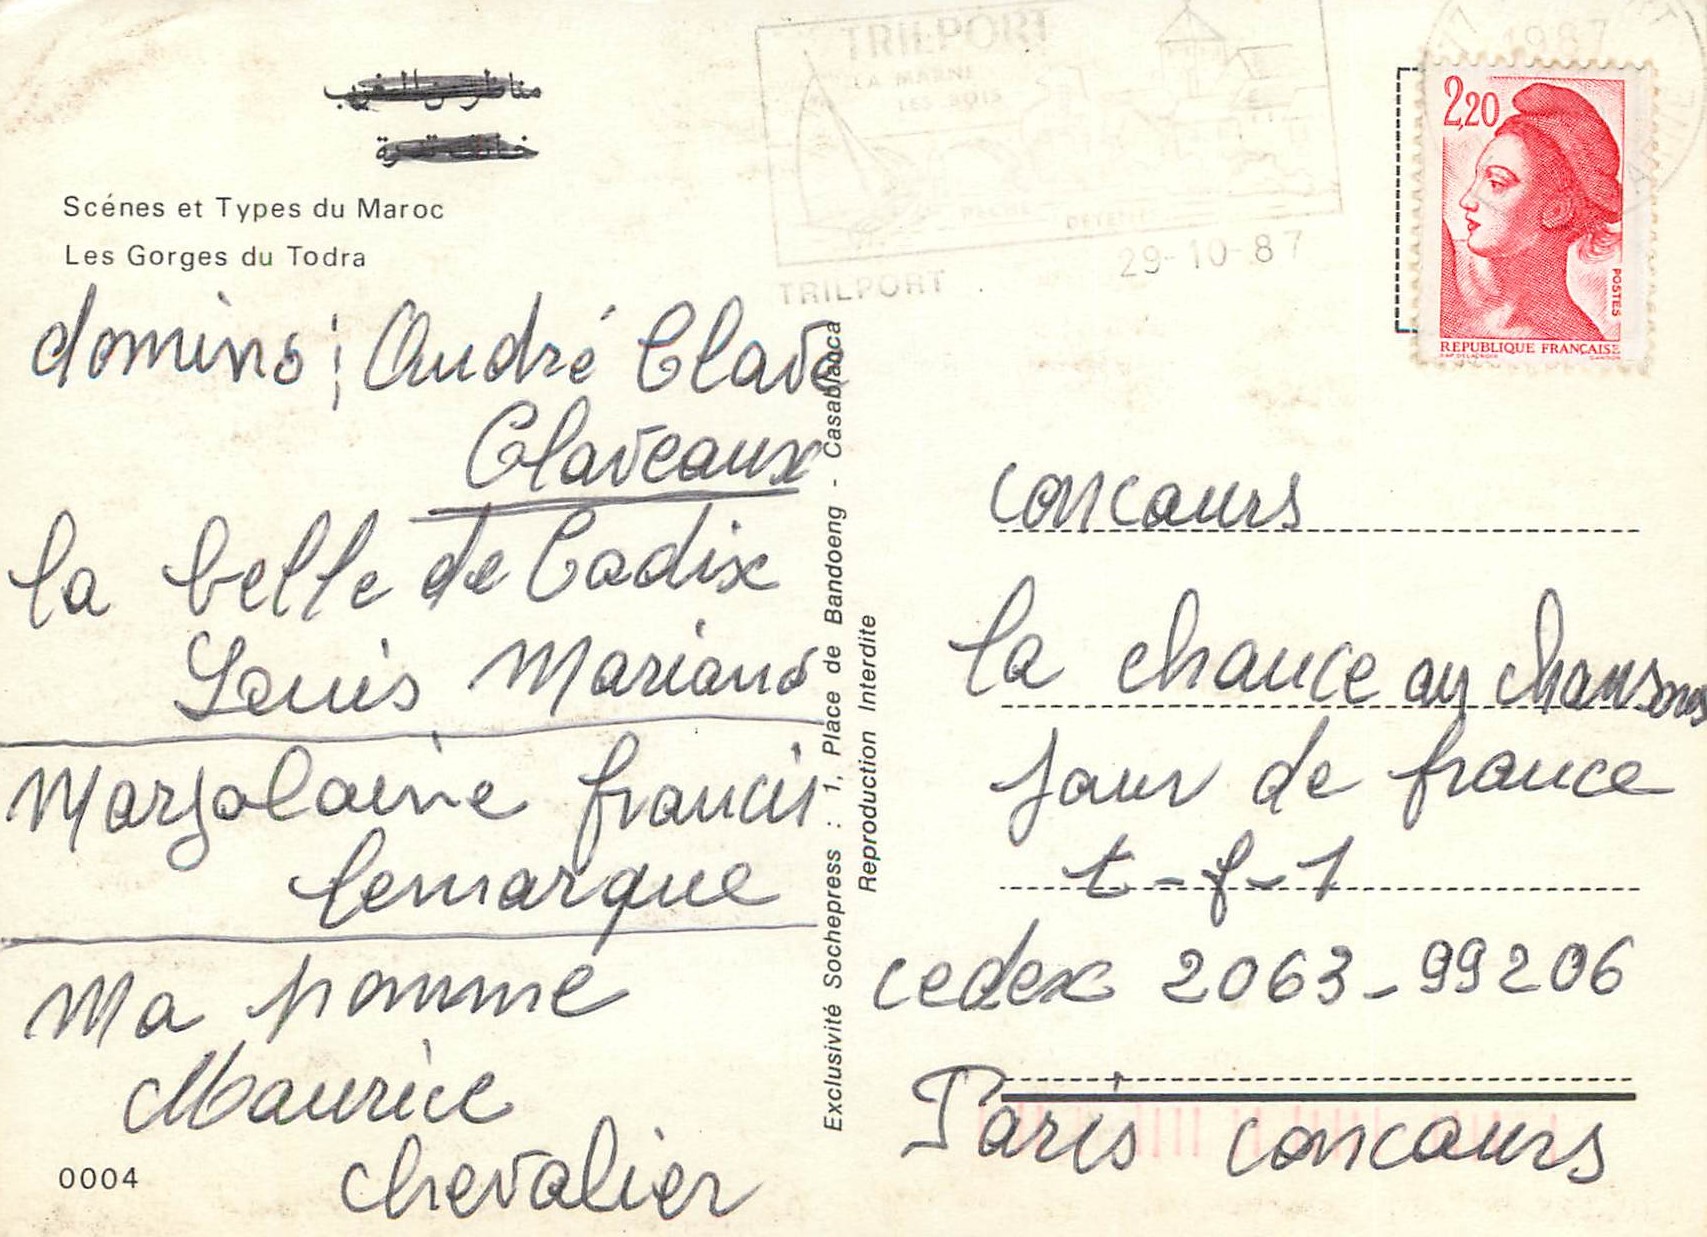 Scénes et Types du Maroc
Les Gorges du Todra
domino ; André Clave
Claveaux
la belle de Cadix
Louis Mariano
Marjolaine francis
lemarque
Ma pomme
Maurice
chevalier
0004
Exclusivité Sochepress : 1, Place de Bandoeng - Casablanca
Reproduction Interdite
TRILPORT
LA MARNE
LES BOIS
PECHE DETENTE
TRILPORT
29-10-87
1987
2,20
POSTES
REPUBLIQUE FRANÇAISE
concours
la chance au chansons
jour de france
t-f-1
cedex 2063-99206
Paris concours